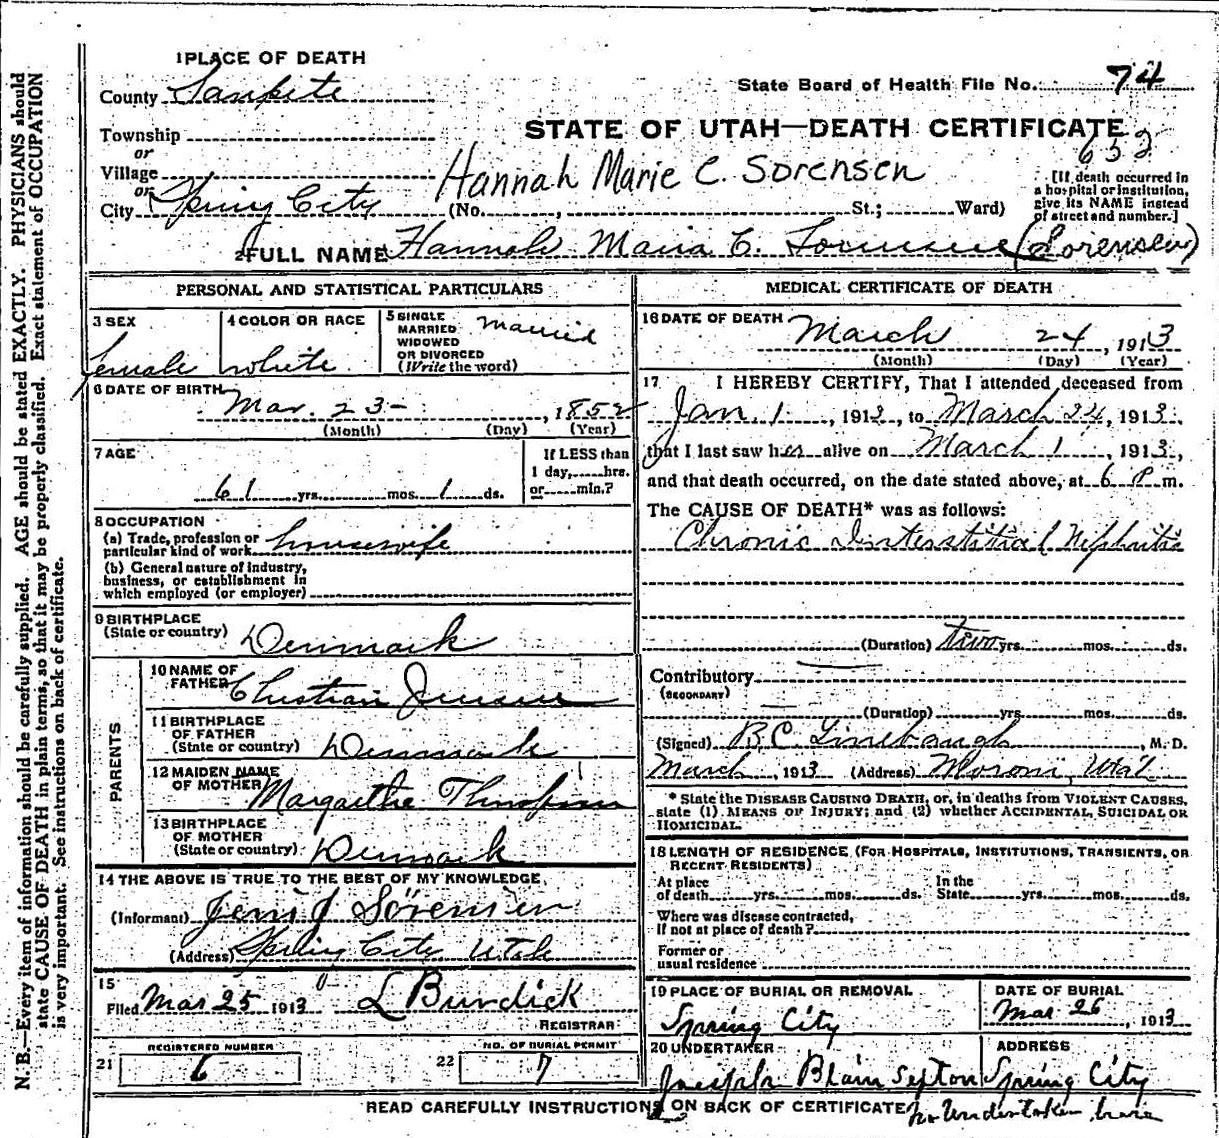 1 PLACE OF DEATH
County Sanpete
State Board of Health File No. 74
Township
or
Village
or
City Spring City
STATE OF UTAH—DEATH CERTIFICATE
652
Hannah Marie C. Sorensen
(No. , St.; Ward)
[If death occurred in
a hospital or institution,
give its NAME instead
of street and number.]
2 FULL NAME Hannah Maria C. (Sorensen)
PERSONAL AND STATISTICAL PARTICULARS
3 SEX
female
4 COLOR OR RACE
white
5 SINGLE
MARRIED
WIDOWED
OR DIVORCED
(Write the word)
married
6 DATE OF BIRTH
Mar. 23- , 1852
(Month) (Day) (Year)
7 AGE
61 yrs. mos. 1 ds.
If LESS than
1 day, hrs.
or min.?
8 OCCUPATION
(a) Trade, profession or
particular kind of work housewife
(b) General nature of industry,
business, or establishment in
which employed (or employer)
9 BIRTHPLACE
(State or country) Denmark
PARENTS
10 NAME OF
FATHER Christian Jensen
11 BIRTHPLACE
OF FATHER
(State or country) Denmark
12 MAIDEN NAME
OF MOTHER Margarethe
13 BIRTHPLACE
OF MOTHER
(State or country) Denmark
14 THE ABOVE IS TRUE TO THE BEST OF MY KNOWLEDGE
(Informant) Jens J Sörensen
(Address) Spring City Utah
15
Filed Mar 25 1913 L Burdick
REGISTRAR
21 REGISTERED NUMBER
6
22 NO. OF BURIAL PERMIT
7
MEDICAL CERTIFICATE OF DEATH
16 DATE OF DEATH March 24, 1913
(Month) (Day) (Year)
17 I HEREBY CERTIFY, That I attended deceased from
Jan. 1, 1912, to March 24, 1913,
that I last saw her alive on March 1, 1913,
and that death occurred, on the date stated above, at 6 P m.
The CAUSE OF DEATH* was as follows:
Chronic Interstitial Nephritis
(Duration) two yrs. mos. ds.
Contributory
(SECONDARY)
(Duration) yrs. mos. ds.
(Signed) B.C. Linebaugh, M. D.
March, 1913 (Address) Moroni, Utah
* State the DISEASE CAUSING DEATH, or, in deaths from VIOLENT CAUSES,
state (1) MEANS OF INJURY; and (2) whether ACCIDENTAL, SUICIDAL OR
HOMICIDAL.
18 LENGTH OF RESIDENCE (FOR HOSPITALS, INSTITUTIONS, TRANSIENTS, OR
RECENT RESIDENTS)
At place
of death yrs. mos. ds.
In the
State yrs. mos. ds.
Where was disease contracted,
If not at place of death?
Former or
usual residence
19 PLACE OF BURIAL OR REMOVAL
Spring City
DATE OF BURIAL
Mar 26, 1913
20 UNDERTAKER
Joseph Blain Sexton
ADDRESS
Spring City
READ CAREFULLY INSTRUCTIONS ON BACK OF CERTIFICATE
no Undertaker here
N. B.—Every item of information should be carefully supplied. AGE should be stated EXACTLY. PHYSICIANS should
state CAUSE OF DEATH in plain terms, so that it may be properly classified. Exact statement of OCCUPATION
is very important. See instructions on back of certificate.